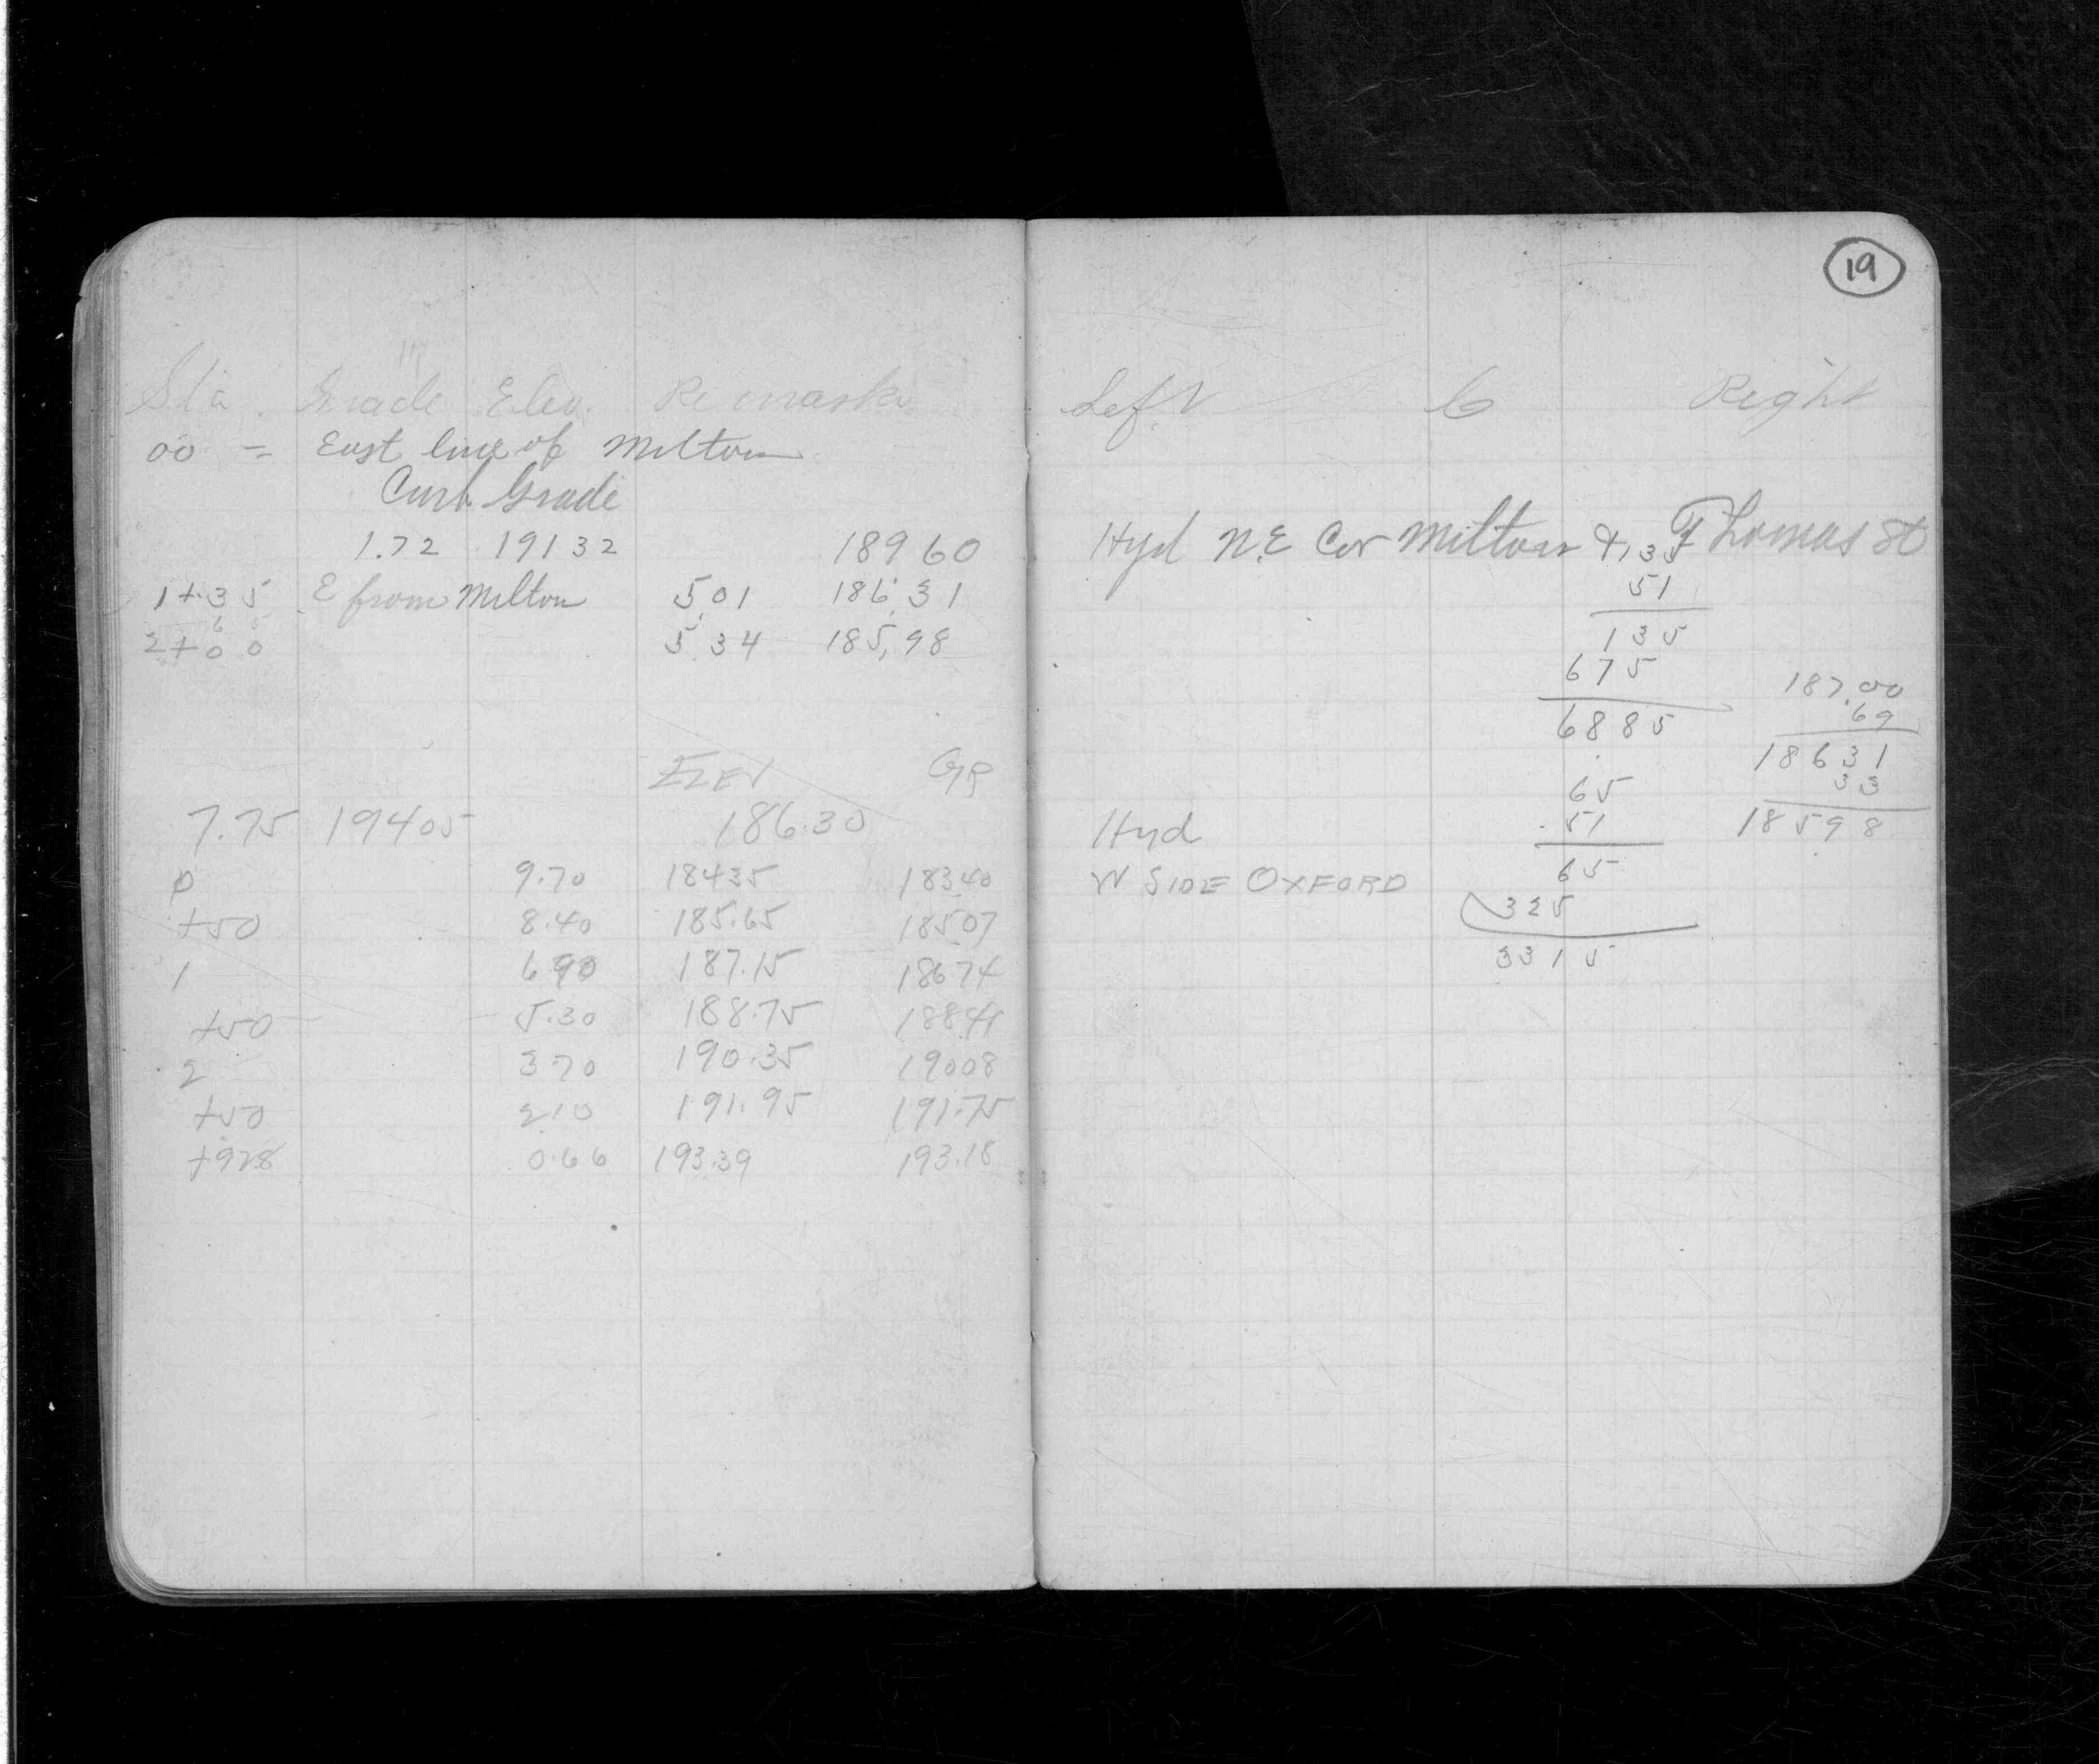 19
Sta. Grade Elev. Remarks
00 = East line of Milton
Curb Grade
1.72 191 32 189 60
1+35 E from Milton 5.01 186.31
6 5
2+00 5 34 185,98
ELEV GR
7.75 19405 186.30
0 9.70 18435 183.40
+50 8.40 185.65 18507
1 6.90 187.15 18674
+50 5.30 188.75 18841
2 370 190.35 19008
+50 210 191.95 191.75
+928 0.66 193.39 193.18
Left 6 Right
Hyd N.E Cor Milton & Thomas St
1,35
51
135
675
6885
65
.51
65
325
3315
187.00
69
18631
33
18598
Hyd
W SIDE OXFORD